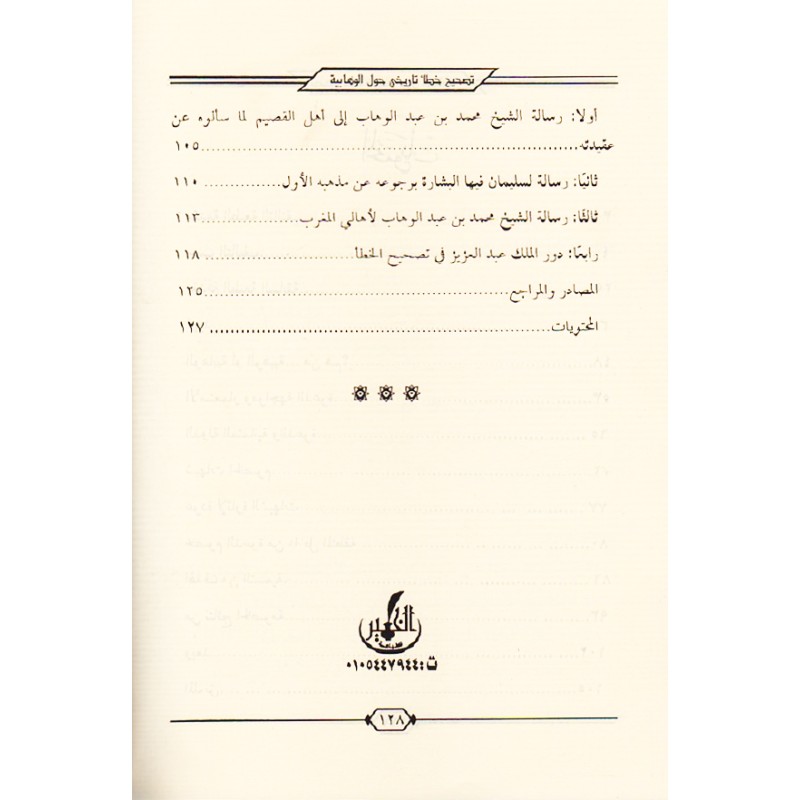 تصحيح خطأ تاريخي حول الوهابية
أولا: رسالة الشيخ محمد بن عبد الوهاب إلى أهل القصيم لما سألوه عن
عقيدته ..... ١٠٥
ثانيًا: رسالة لسليمان فيها البشارة برجوعه عن مذهبه الأول ..... ١١٠
ثالثًا: رسالة الشيخ محمد بن عبد الوهاب لأهالي المغرب ..... ١١٣
رابعًا: دور الملك عبد العزيز في تصحيح الخطأ ..... ١١٨
المصادر والمراجع ..... ١٢٥
المحتويات ..... ١٢٧
ت: ٠١٠٥٤٤٧٩٤٤
١٢٨